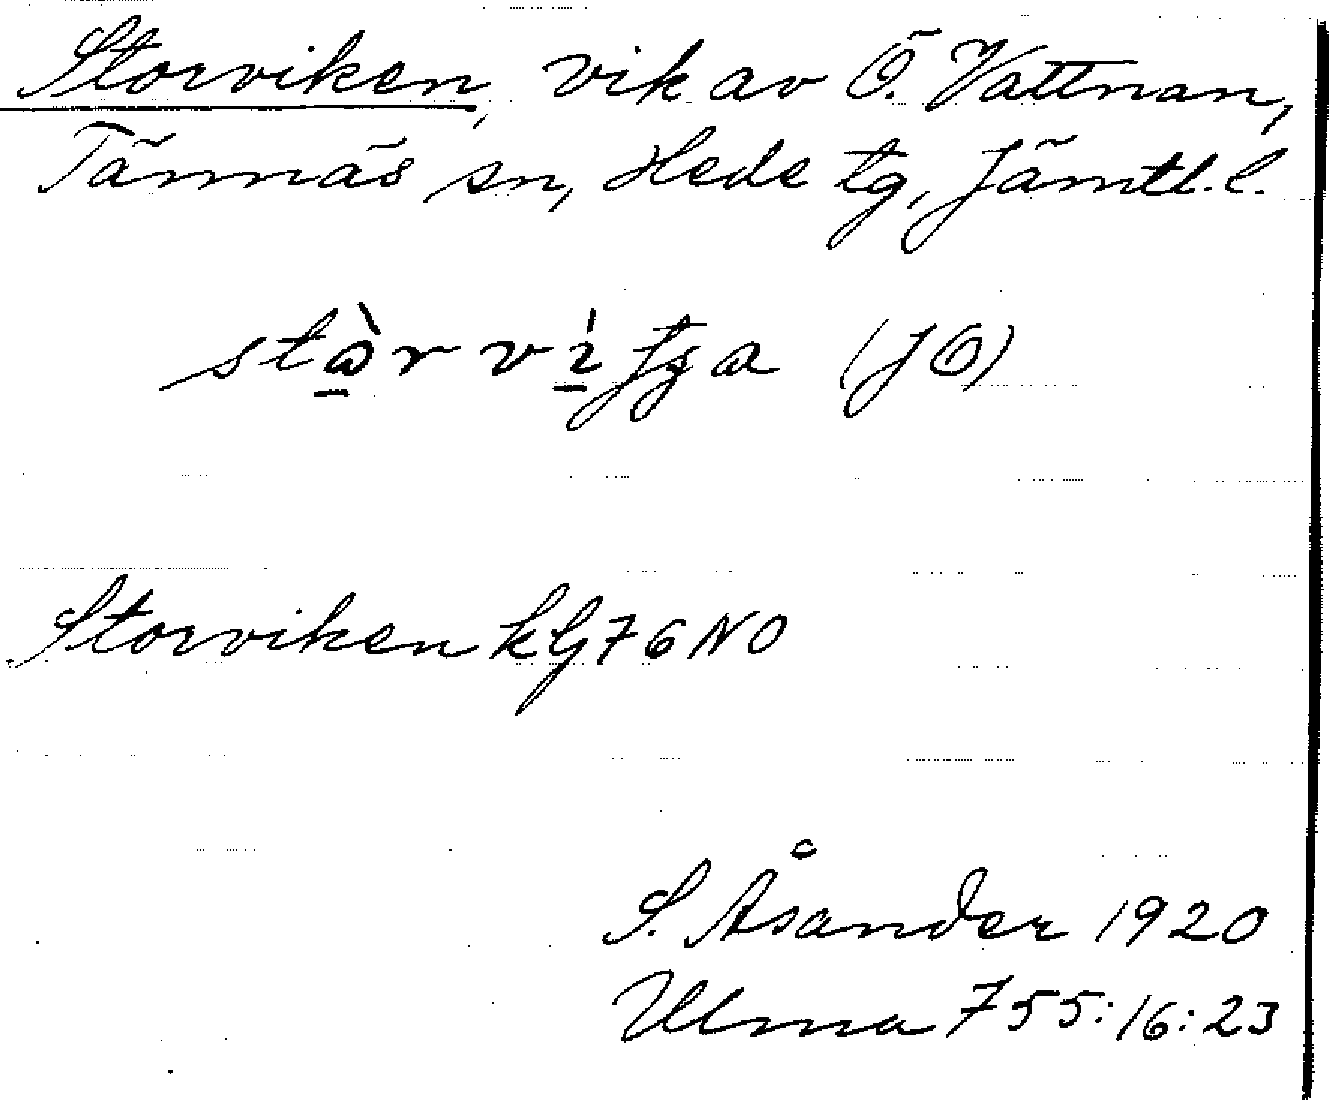 Storviken, vik av Ö. Vattnan,
Tännäs sn, Hede tg, Jämtl. l.
(JÖ)
Storviken kbl 76 NO
S. Åsander 1920
Ulma 755:16:23